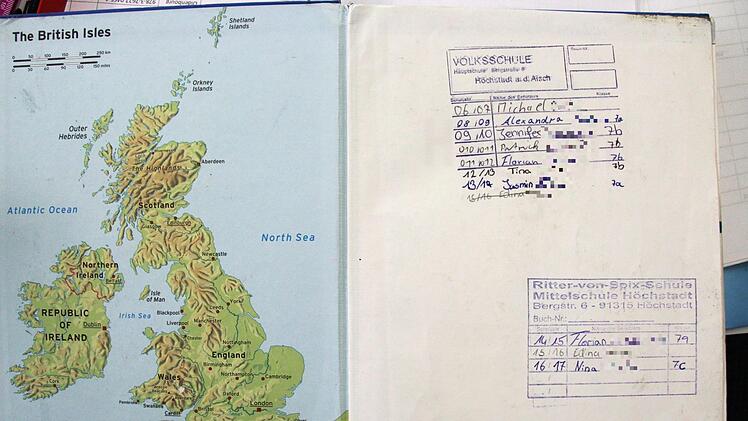 The British Isles
0 50 100 150 200 250 km
0 50 100 150 miles
Shetland
Islands
Orkney
Islands
Outer
Hebrides
The Highlands
Aberdeen
Atlantic Ocean
Scotland
Glasgow
Edinburgh
North Sea
Newcastle
Northern
Ireland
Belfast
Isle
of Man
REPUBLIC
OF
IRELAND
Dublin
Irish Sea
Blackpool
Leeds
York
Liverpool
Manchester
Chester
Nottingham
England
Birmingham
Wales
Northampton
Cambridge
Cork
Oxford
Swansea
Cardiff
Bristol
London
VOLKSSCHULE
Höchstadt a.d. Aisch
Schuljahr Name des Schülers Klasse
06 07 Michael
08 09 Alexandra 7a
09 10 Jennifer 7b
010 1011 Patrick 7b
011 1012 Florian 7b
12/13 Tina 7b
13/14 Jasmin 7a
15/16 Edina
Ritter-von-Spix-Schule
Mittelschule Höchstadt
Bergstr. 6 - 91315 Höchstadt
Buch-Nr.:
14 15 Florian 7a
15 16 Edina
16 17 Nina 7c